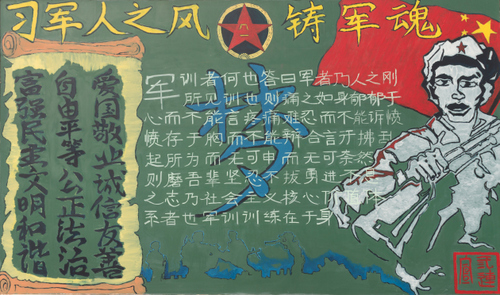 习军人之风
铸军魂
八一
梦
军训者何也答曰军者乃人之刚
所见训也则痛之如身郁郁于
心而不能言疼痛难忍而不能诉愤
愤存于胸而不能辩合言牙拂
起所为而无可申而无可奈然
则磨吾辈坚忍不拔勇进不
之志乃社会主义核心价值体
系者也军训训练在于身
爱国敬业诚信友善
自由平等公正法治
富强民主文明和谐